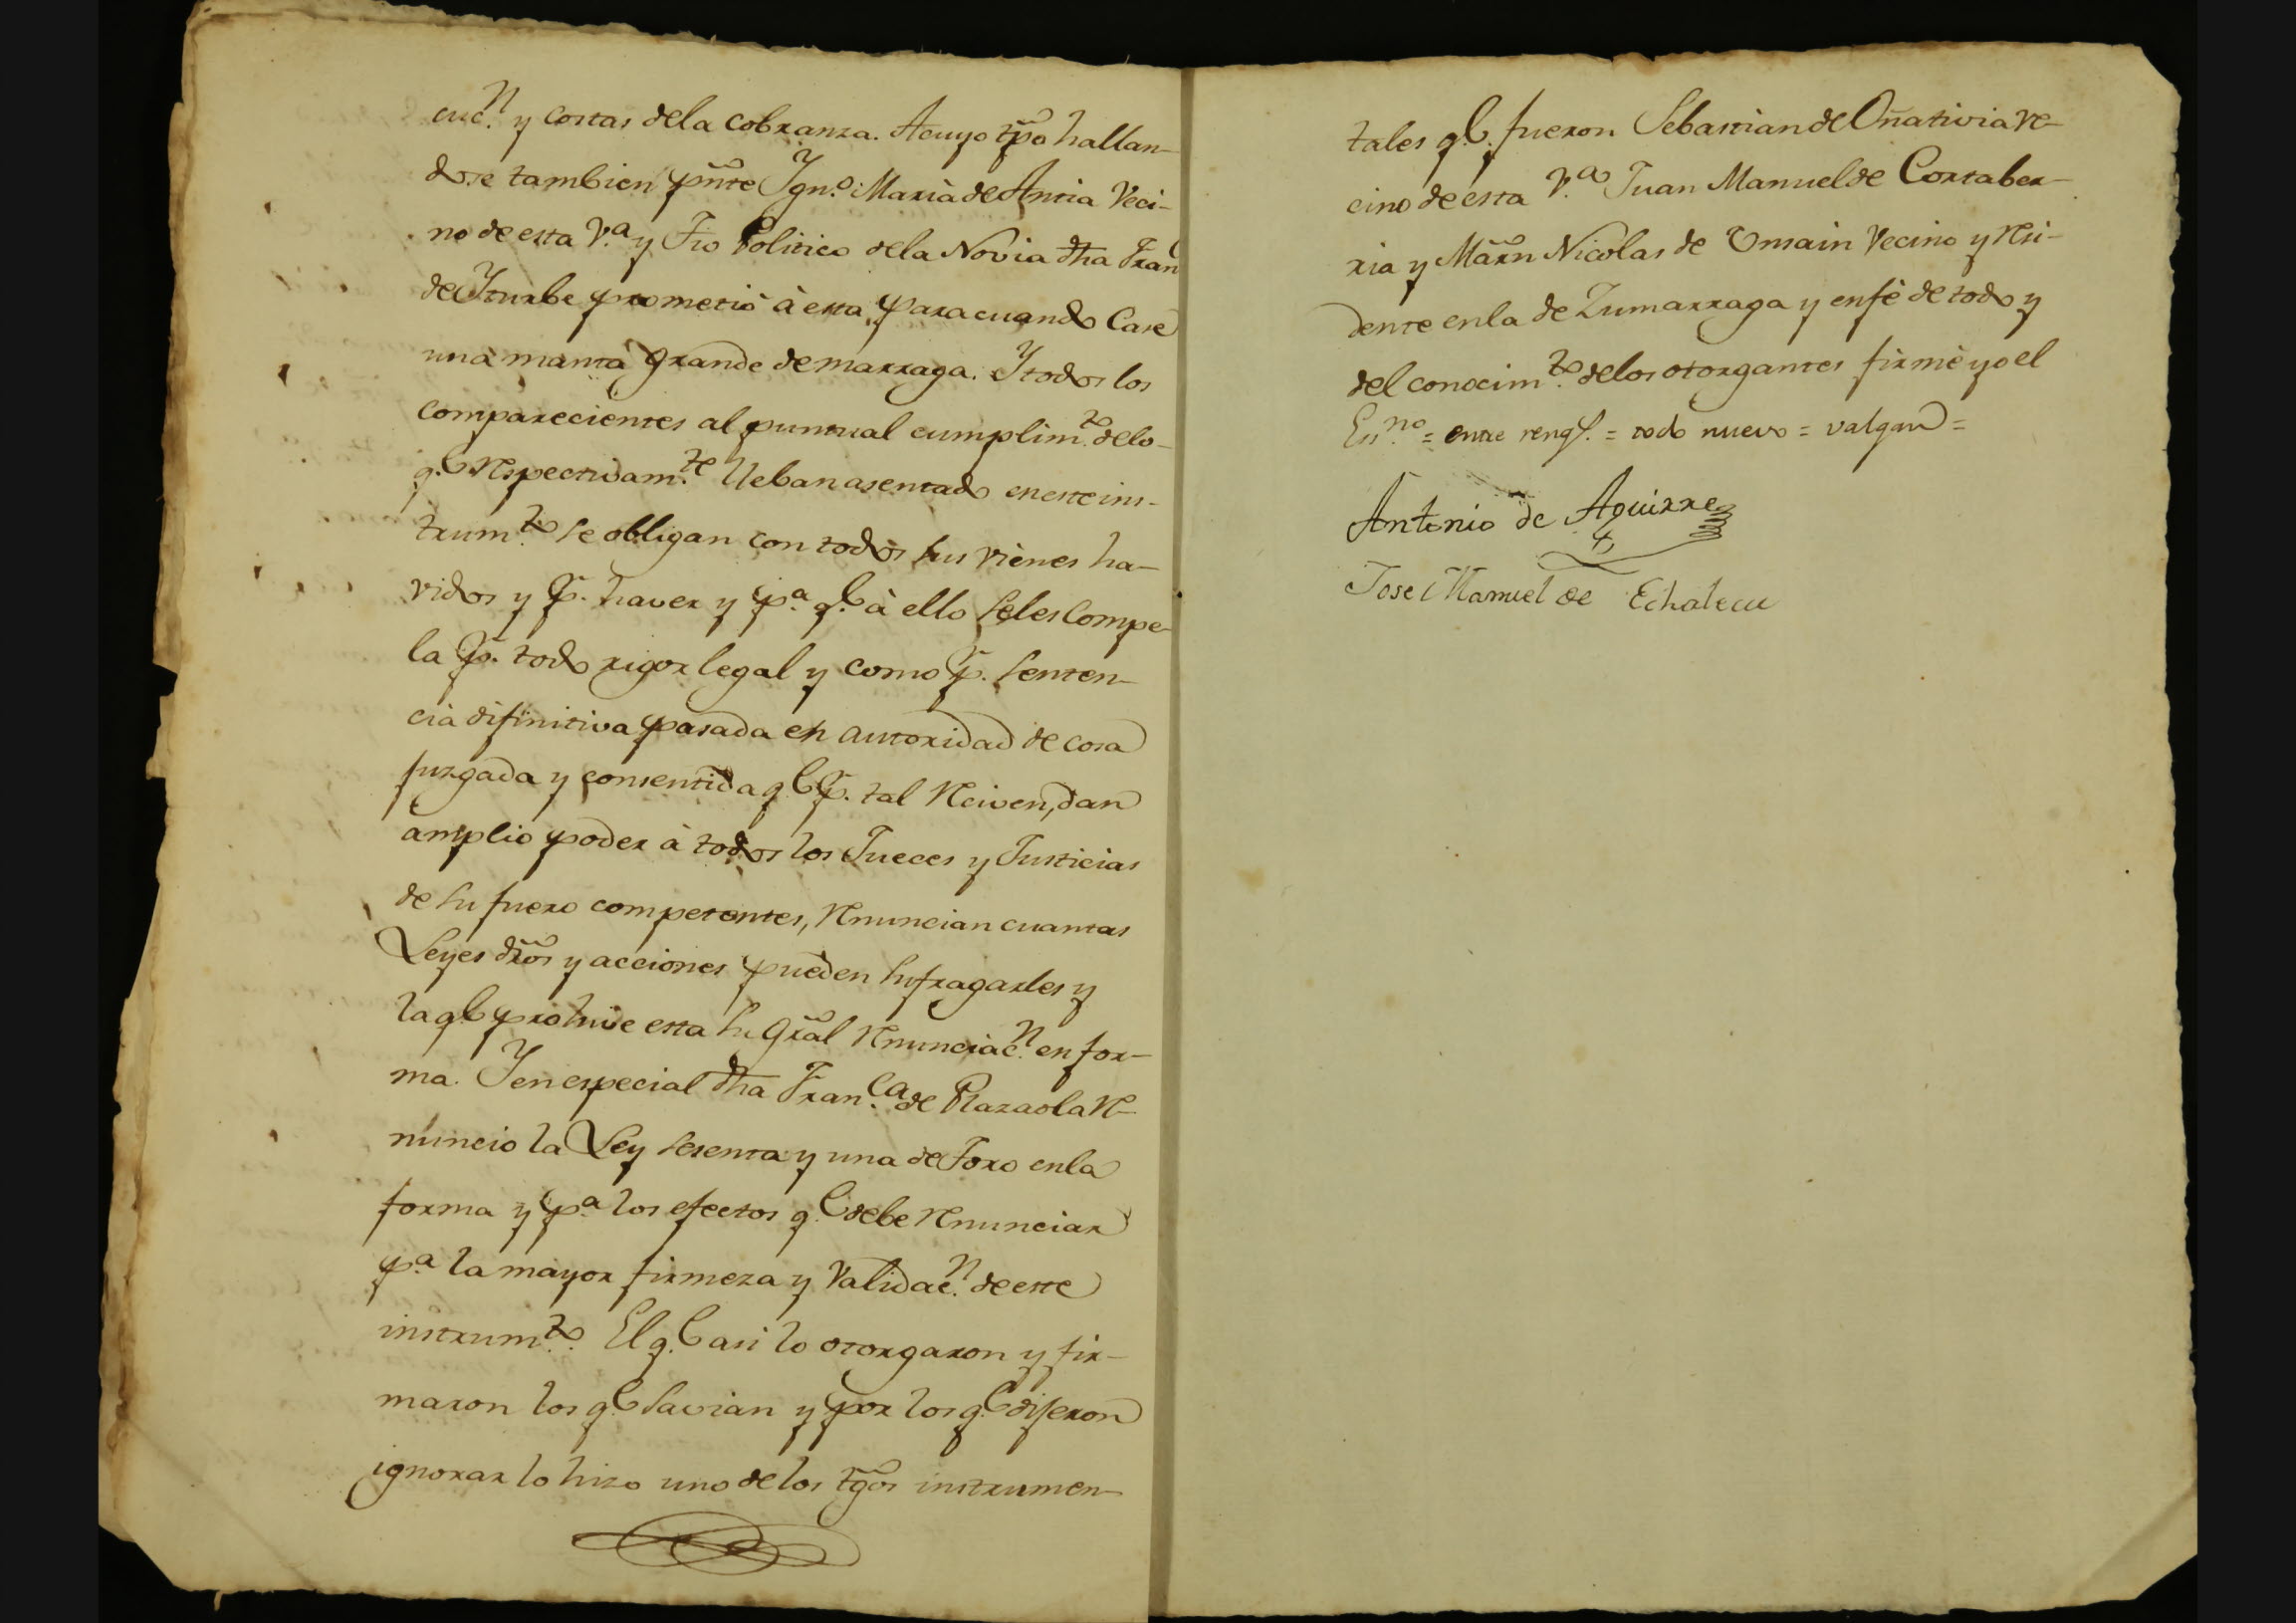 cuc.n y costas dela cobranza. Acuyo tpo hallan-
dose tambien pnte Ygn.o Maria de Antia Veci-
no de esta V.a y Tio Politico dela Novia dha Fran
de Yturbe prometiò à esta, para cuando Case
una manta grande de marraga. Y todos los
comparecientes al puntual cumplim.to delo
q.e respectivam.te lleban asentado en este ins-
trum.to se obligan con todos sus vienes ha-
vidos y p.r haver y p.a q.e à ello seles Compe-
la p.r todo rigor legal y como p.r senten-
cia difinitiva pasada en autoridad de cosa
juzgada y consentida q.e p.r tal reciven, dan
amplio poder à todos los Jueces y Justicias
de su fuero competentes, renuncian cuantas
Leyes dros y acciones pueden sufragarles y
la q.e prohive esta su gral renunciac.n en for-
ma. Y en especial dha Fran.ca de Plazaola re-
nuncio la Ley sesenta y una de Toro enla
forma y p.a los efectos q.e debe renunciar
p.a la mayor firmeza y Validac.n de este
instrum.to. El q.e asi lo otorgaron y fir-
maron los q.e savian y por los q.e dijeron
ignorar lo hizo uno de los tgos instrumen-
tales q.e fueron Sebastian de Oñativia ve-
cino de esta V.a Juan Manuel de Cortaber-
ria y Marn Nicolas de Unsain Vecino y resi-
dente enla de Zumarraga y en fè de todo y
del conocim.to delos otorgantes firmè yo el
Ess.no = entre rengs. = todo nuevo = valgan =
Antonio de Aguirre
Jose Manuel de Echalecu